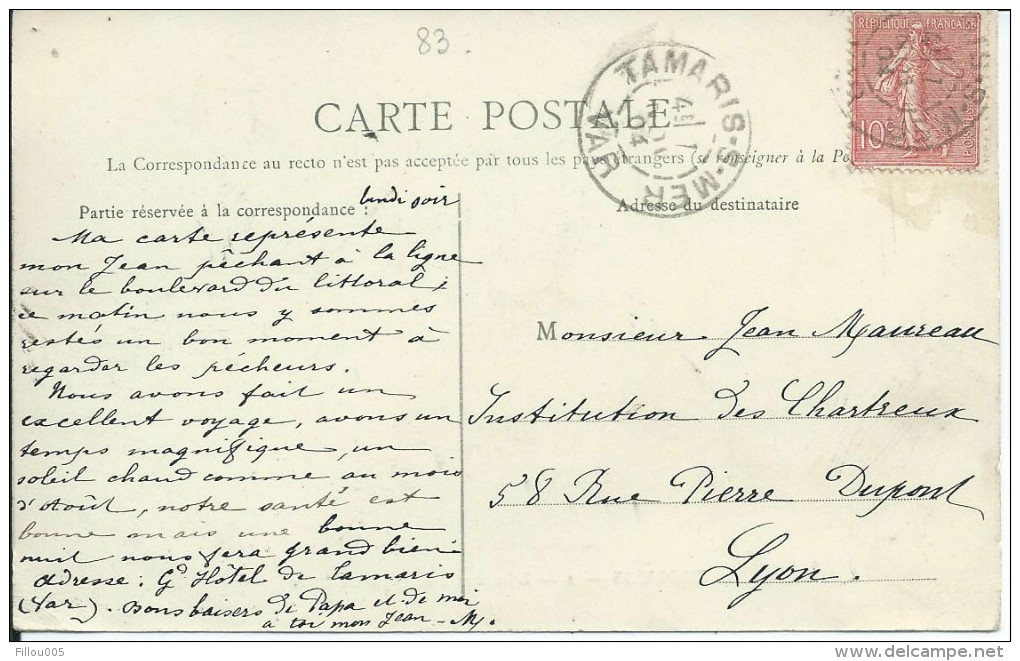 83.
RÉPUBLIQUE FRANÇAISE
10c
POSTES
TAMARIS-S-MER
VAR
04
CARTE POSTALE
La Correspondance au recto n'est pas acceptée par tous les pays étrangers (se renseigner à la Po
Partie réservée à la correspondance :
Adresse du destinataire
lundi soir
Ma carte représente
mon Jean pêchant à la ligne
sur le boulevard du littoral ;
ce matin nous y sommes
restés un bon moment à
regarder les pêcheurs.
Nous avons fait un
excellent voyage, avons un
temps magnifique, un
soleil chaud comme au mois
d'Août, notre santé est
bonne mais une bonne
nuit nous fera grand bien
adresse : Gd Hôtel de Tamaris
(Var). Bons baisers de Papa et de moi
à toi mon Jean - M.
Monsieur Jean Maureau
Institution des Chartreux
58 Rue Pierre Dupont
Lyon.
Fillou005
www.delcampe.net